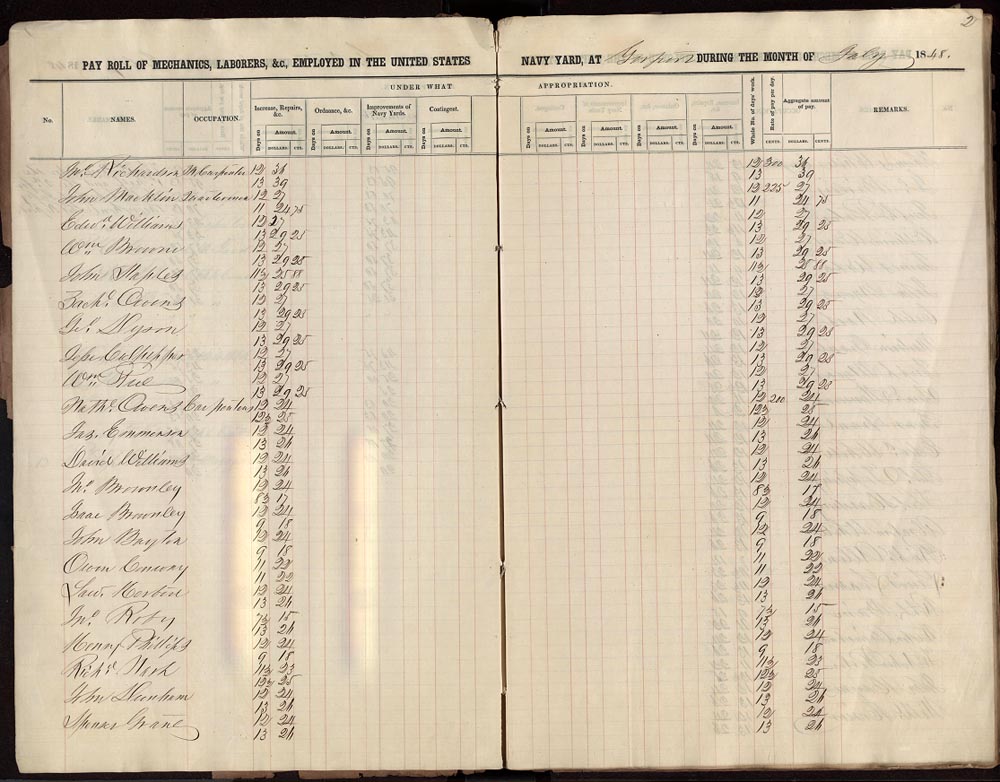 2
PAY ROLL OF MECHANICS, LABORERS, &c, EMPLOYED IN THE UNITED STATES NAVY YARD, AT Gosport DURING THE MONTH OF July 1848.
UNDER WHAT APPROPRIATION.
No. NAMES. OCCUPATION. Increase, Repairs, &c. Ordnance, &c. Improvements of Navy Yards. Contingent. Whole No. of days' work. Rate of pay per day. Aggregate amount of pay. REMARKS.
Days on Amount. Days on Amount. Days on Amount. Days on Amount. Days on Amount. Days on Amount. Days on Amount. Days on Amount.
DOLLARS. CTS. DOLLARS. CTS. DOLLARS. CTS. DOLLARS. CTS. DOLLARS. CTS. DOLLARS. CTS. DOLLARS. CTS. DOLLARS. CTS. CENTS. DOLLARS. CENTS.
Jno. Richardson M. Carpenter 12 36 12 300 36
13 39 13 39
John Macklin Quartermen 12 27 12 225 27
11 24 75 11 24 75
Edwd. Williams 12 27 12 27
13 29 25 13 29 25
Wm. Browne 12 27 12 27
13 29 25 13 29 25
John Staples 11½ 25 88 11½ 25 88
13 29 25 13 29 25
Zach. Owens 12 27 12 27
13 29 25 13 29 25
Geo. Hyson 12 27 12 27
13 29 25 13 29 25
Jesse Culpepper 12 27 12 27
13 29 25 13 29 25
Wm. 12 27 12 27
13 29 25 13 29 25
Nath. Owens Carpenters 12 24 12 200 24
12½ 25 12½ 25
Jas. Emmerson 12 24 12 24
13 26 13 26
David Williams 12 24 12 24
13 26 13 26
Jno. Brownley 12 24 12 24
8½ 17 8½ 17
Isaac Brownley 12 24 12 24
9 18 9 18
John 12 24 12 24
9 18 9 18
Owen Conway 11 22 11 22
11 22 11 22
12 24 12 24
13 26 13 26
Jno. Roby 7½ 15 7½ 15
13 26 13 26
Henry Phillips 12 24 12 24
9 18 9 18
Richd. Nash 11½ 23 11½ 23
12½ 25 12½ 25
John 12 24 12 24
13 26 13 26
12 24 12 24
13 26 13 26